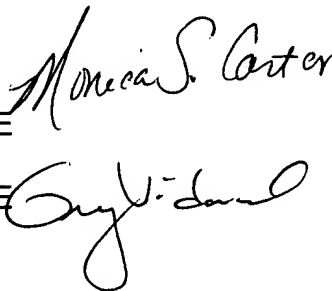 Monica S. Carter
Guy Vidal